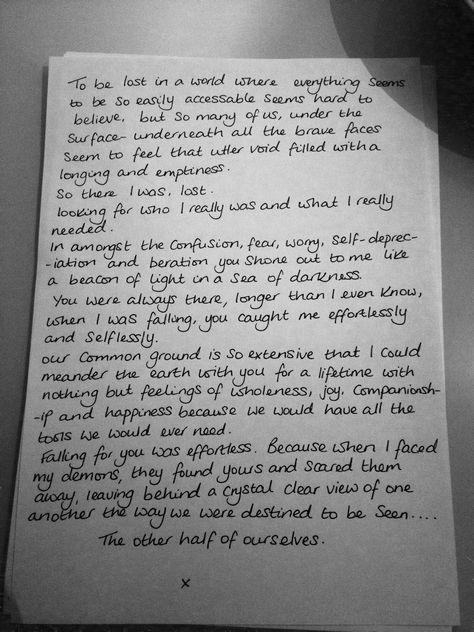 To be lost in a world where everything seems
to be so easily accessable seems hard to
believe, but so many of us, under the
surface- underneath all the brave faces
seem to feel that utter void filled with a
longing and emptiness.
So there I was, lost.
looking for who I really was and what I really
needed.
In amongst the confusion, fear, worry, self-deprec-
-iation and beration you shone out to me like
a beacon of light in a sea of darkness.
You were always there, longer than I even know,
when I was falling, you caught me effortlessly
and selflessly.
our common ground is so extensive that I could
meander the earth with you for a lifetime with
nothing but feelings of wholeness, joy, companionsh-
-ip and happiness because we would have all the
tools we would ever need.
Falling for you was effortless. Because when I faced
my demons, they found yours and scared them
away, leaving behind a crystal clear view of one
another the way we were destined to be seen....
The other half of ourselves.
x